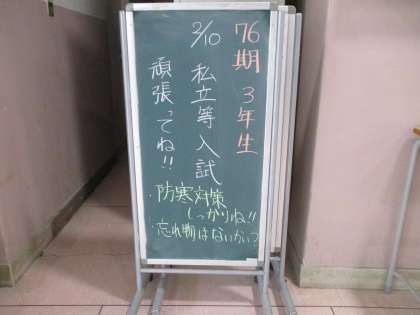 76期 3年生
2/10 私立等入試
頑張ってね!!
・防寒対策
しっかりね!!
・忘れ物はないかい?